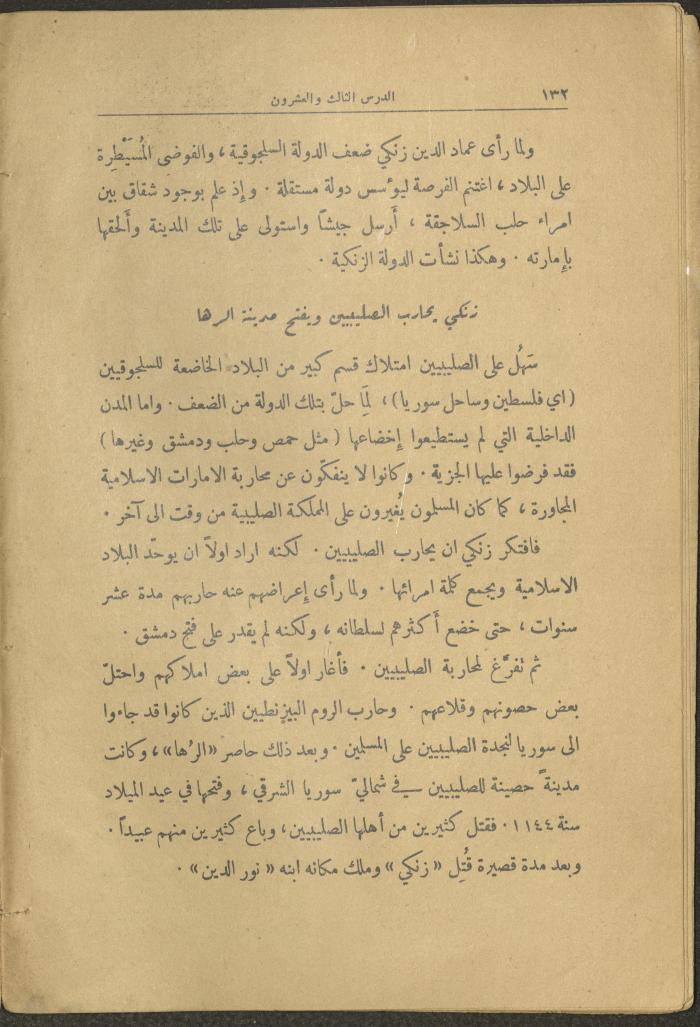 ١٣٢ الدرس الثالث والعشرون
ولما رأى عماد الدين زنكي ضعف الدولة السلجوقية ، والفوضى المُسَيْطِرة
على البلاد ، اغتنم الفرصة ليؤسس دولة مستقلة . وإذ علم بوجود شقاق بين
امراء حلب السلاجقة ، أَرسل جيشاً واستولى على تلك المدينة وأَلحقها
بإمارته . وهكذا نشأت الدولة الزنكية .
زنكي يحارب الصليبيين ويفتح مدينة الرها
سَهُل على الصليبيين امتلاك قسم كبير من البلاد الخاضعة للسلجوقيين
(اي فلسطين وساحل سوريا) ، لِمَا حلّ بتلك الدولة من الضعف . واما المدن
الداخلية التي لم يستطيعوا إخضاعها (مثل حمص وحلب ودمشق وغيرها)
فقد فرضوا عليها الجزية . وكانوا لا ينفكّون عن محاربة الامارات الاسلامية
المجاورة ، كما كان المسلمون يُغيرون على المملكة الصليبية من وقت الى آخر .
فافتكر زنكي ان يحارب الصليبيين . لكنه اراد اولاً ان يوحّد البلاد
الاسلامية ويجمع كلمة امرائها . ولما رأى إعراضهم عنه حاربهم مدة عشر
سنوات ، حتى خضع أَكثرهم لسلطانه ، ولكنه لم يقدر على فتح دمشق .
ثم تفرَّغ لمحاربة الصليبيين . فأغار اولاً على بعض املاكهم واحتلّ
بعض حصونهم وقلاعهم . وحارب الروم البيزنطيين الذين كانوا قد جاءوا
الى سوريا لنجدة الصليبيين على المسلمين . وبعد ذلك حاصر «الرُها» ، وكانت
مدينةً حصينة للصليبيين في شماليّ سوريا الشرقي ، وفتحها في عيد الميلاد
سنة ١١٤٤ . فقتل كثيرين من أهلها الصليبيين ، وباع كثيرين منهم عبيداً .
وبعد مدة قصيرة قُتِل «زنكي» وملك مكانه ابنه «نور الدين» .